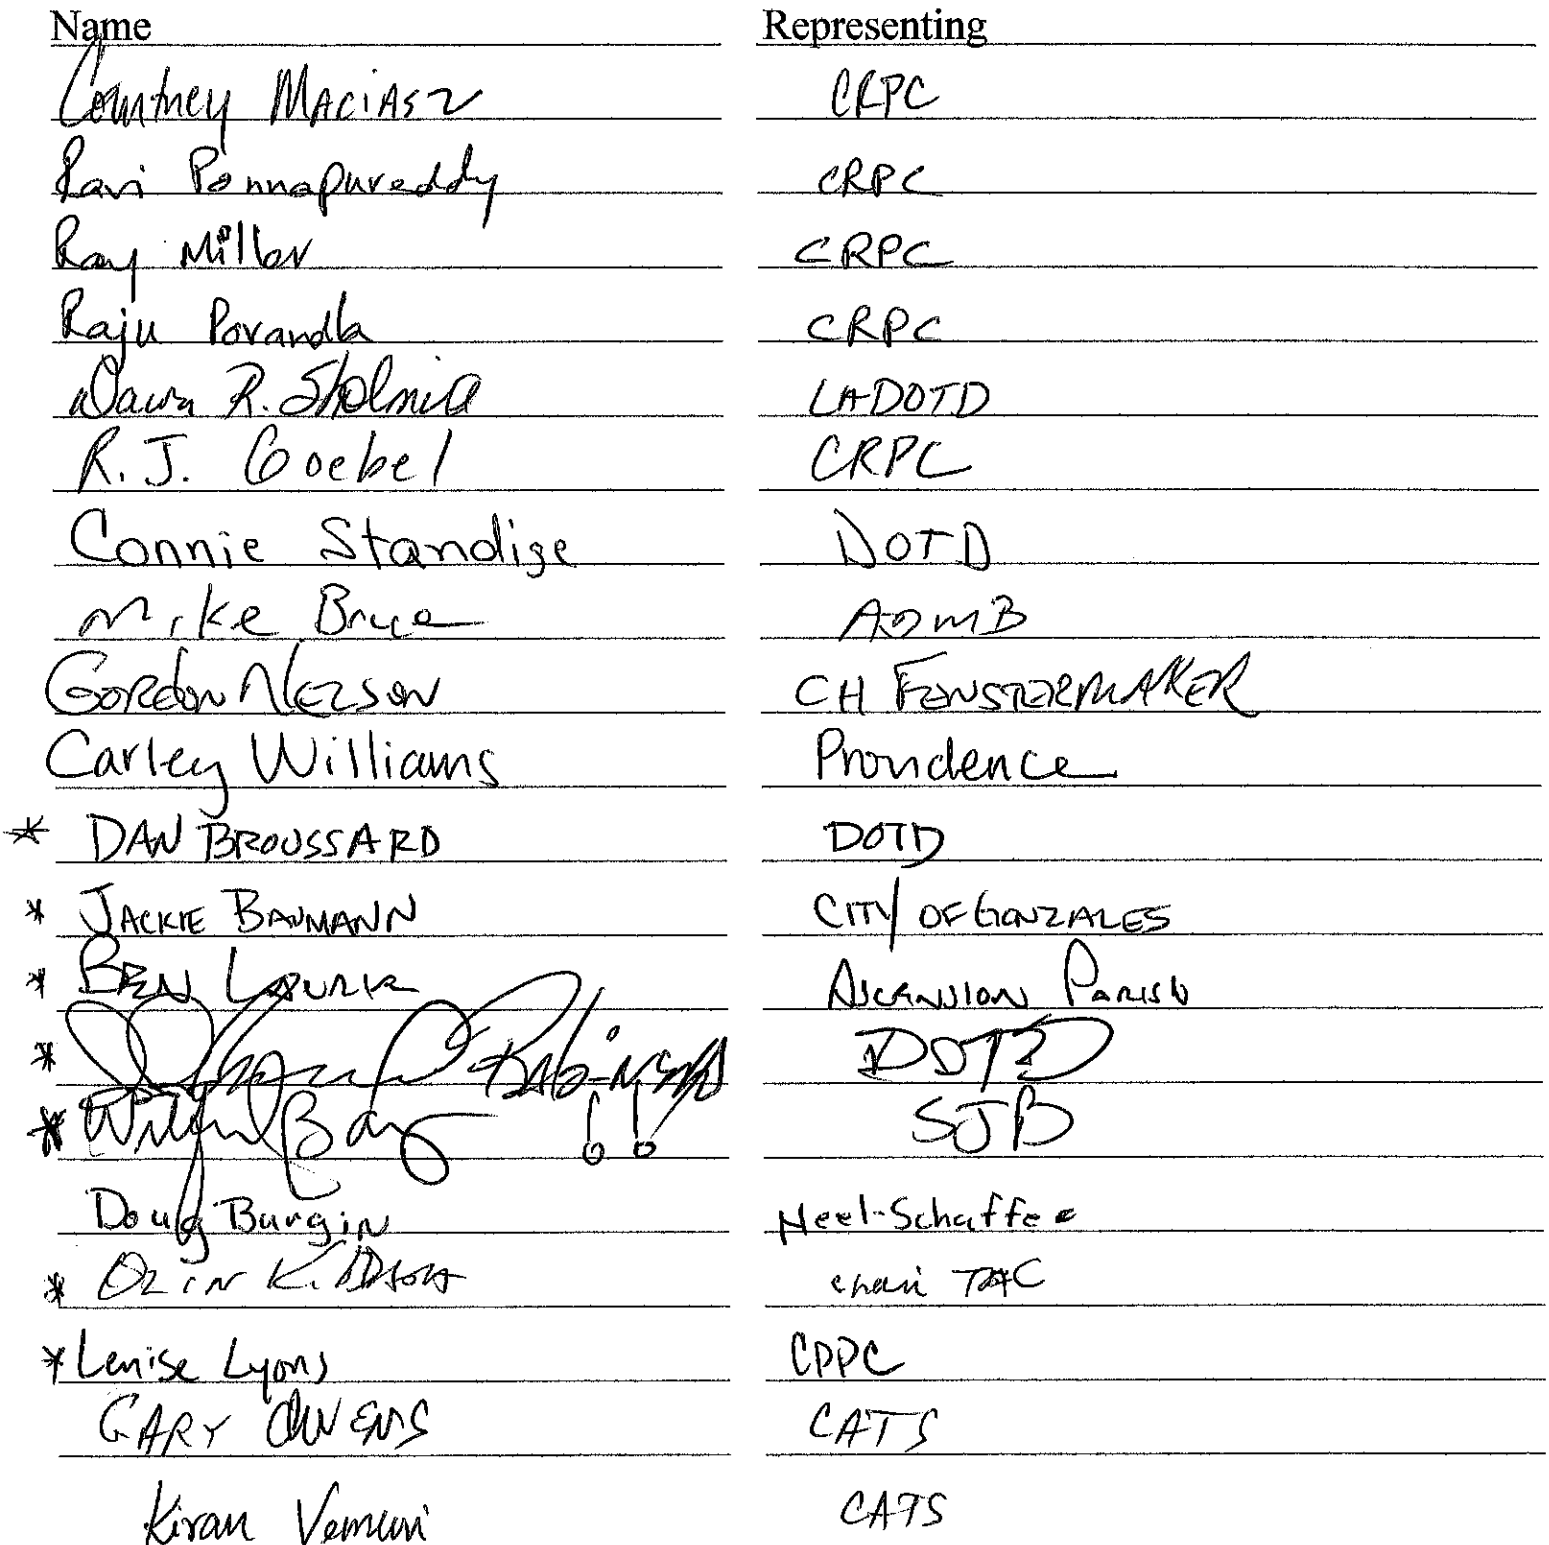 Name Representing
Courtney Maciasz CRPC
Ravi Ponnapureddy CRPC
Ray Miller CRPC
Raju Porandla CRPC
Dawn R. Sholmire LADOTD
R.J. Goebel CRPC
Connie Standige DOTD
Mike Bruce ADMB
GORDON NELSON CH FENSTERMAKER
Carley Williams Providence
* DAN BROUSSARD DOTD
* JACKIE BAUMANN CITY OF GONZALES
* BEN Ascension Parish
* Robinson !! DOTD
* SJB
Doug Burgin Neel-Schaffer
* chair TAC
* Lenise Lyons CPPC
GARY OWENS CATS
Kiran Vemuri CATS